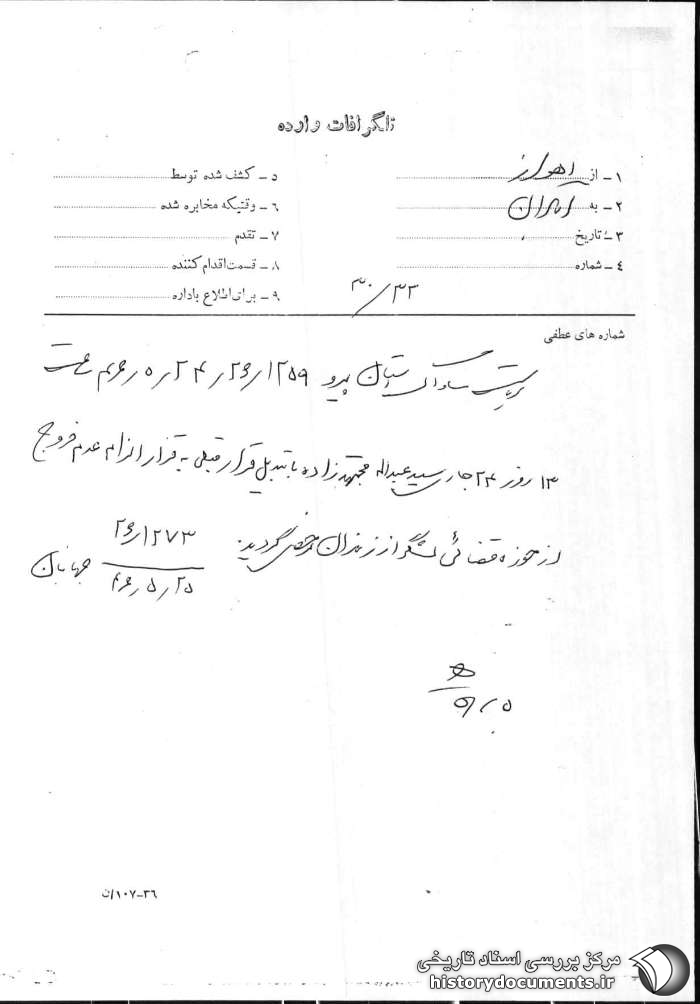 تلگرافات وارده
۱ - از اهواز
۲ - به تهران
۳ - تاریخ
۴ - شماره
۵ - کشف شده توسط
۶ - وقتیکه مخابره شده
۷ - تقدم
۸ - قسمت اقدام کننده
۹ - برای اطلاع باداره
۳۰/۳۲
شماره های عطفی
ریاست ساواک استان پیرو ۲۶/۱۲۵۹ ساعت
۱۳ روز ۲۴ جاری سید عبداله مجتهد زاده با تبدیل قرار قبلی به قرار الزام عدم خروج
از حوزه قضائی لشگر از زندان مرخص گردید.
۲۶/۱۲۷۳
۴۶/۵/۲۵
جهانبان
۳۶-۱۰۷/ن
مرکز بررسی اسناد تاریخی
historydocuments.ir